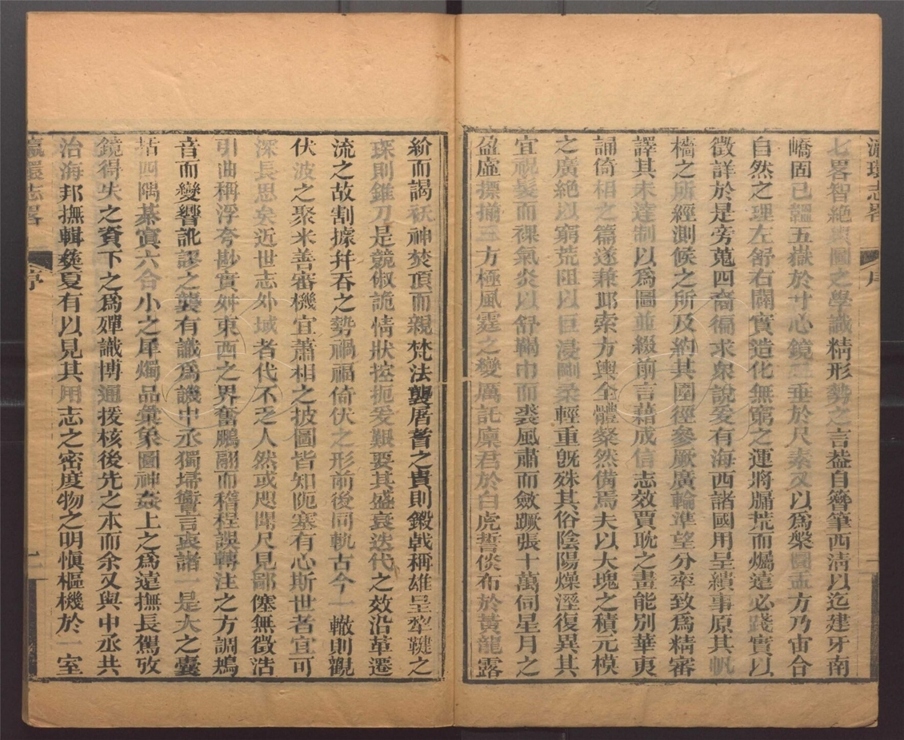 瀛環志畧 序
七畧智絕 圖之學識精形勢之言蓋自簪筆西淸以迄建牙南
嶠固已羅五嶽於寸心鏡 垂於尺素又以爲槃圖盂方乃宙合
自然之理左舒右闢實造化無窮之運將牖荒而爥遠必踐實以
徵詳於是旁蒐四裔徧求衆說爰有海西諸國用呈繢事原其帆
檣之所經測候之所及約其圍徑參厥廣輪準望分率致爲精審
譯其未達制以爲圖並綴前言藉成信志效賈耽之畫能別華夷
誦倚相之篇逐兼邱索方輿全體粲然備焉夫以大塊之積元模
之廣絕以窮荒阻以巨浸剛柔輕重旣殊其俗陰陽燥溼復異其
宜祝髮而裸氣炎以舒鞨巾而裘風肅而斂蹶張十萬伺星月之
盈虛摽掠三方極風霆之變厲託廩君於白虎誓倓布於黃龍露
紒而謁祆神焚頂而親梵法襲居耆之貴則鍛戟稱雄呈犂鞬之
琛則錐刀是競俶詭情狀控扼爰艱要其盛衰迭代之效沿革遷
流之故割據幷吞之勢禍福倚伏之形前後同軌古今一轍則觀
伏波之聚米善審機宜蕭相之披圖皆知阨塞有心斯世者宜可
深長思矣近世志外域者代不乏人然或咫聞尺見鄙僿無徵活
引曲稱浮夸尠實舛東西之界奮鵬翮而稽程誤轉注之方調鴂
音而變響訛謬之襲有識爲譏中丞獨埽讆言衷諸一是大之囊
括四隅綦實六合小之犀爥品彙象圖神姦上之爲遠撫長駕攷
鏡得失之資下之爲殫識博通援核後先之本而余又與中丞共
治海邦撫輯彝夏有以見其用志之密度物之明愼樞機於一室
瀛環志畧 序